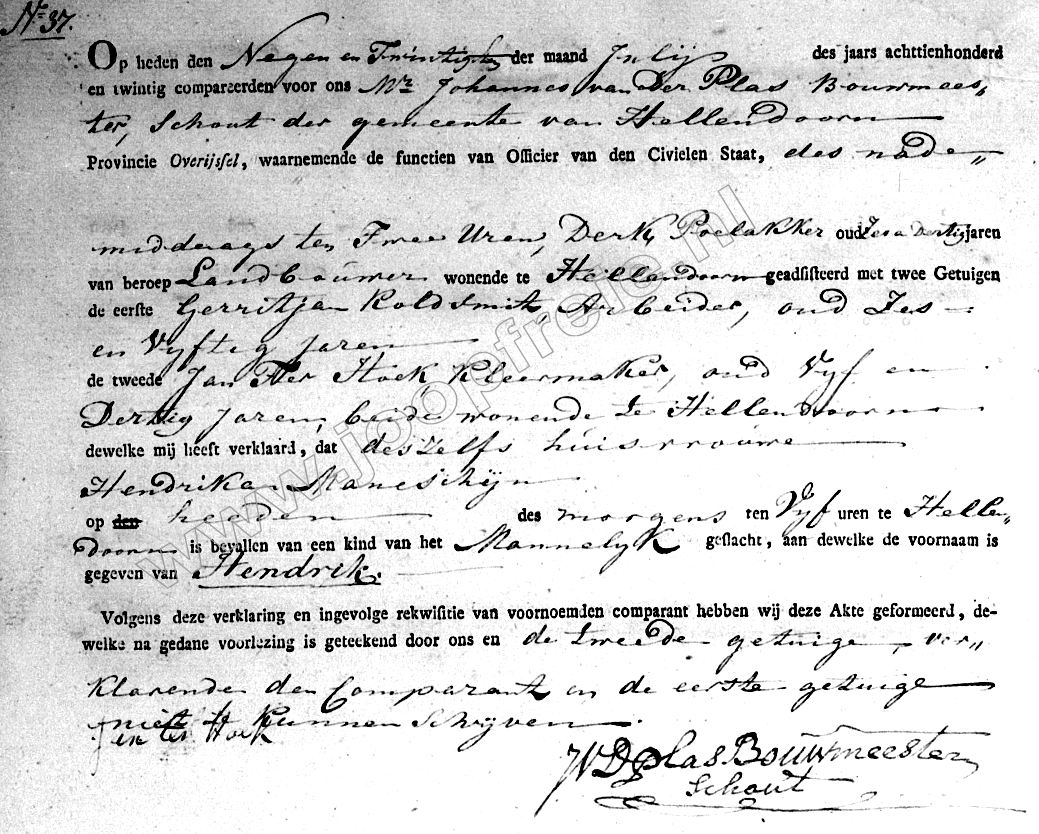 No 37.
Op heden den Negen en Twintigsten der maand Julij des jaars achttienhonderd
en twintig compareerden voor ons Mr Johannes van Der Plas Bouwmees„
ter, Schout der gemeente van Hellendoorn
Provincie Overijssel, waarnemende de functien van Officier van den Civielen Staat, des nade„
middaags ten Twee Uren, Derk Poelakker oud Zes a Dertig jaren
van beroep Landbouwer wonende te Hellendoorn geadsisteerd met twee Getuigen
de eerste Gerritjan Koldsmit Arbeider, oud Zes
en Vyftig Jaren
de tweede Jan Ter Hoek Kleermaker, oud Vyf en
Dertig Jaren, beide wonende te Hellendoorn
dewelke mij heeft verklaard, dat deszelfs huisvrouwe
Hendrika Maneschijn
op den heeden des morgens ten Vyf uren te Hellen„
doorn is bevallen van een kind van het Mannelyk geslacht, aan dewelke de voornaam is
gegeven van Hendrik.
Volgens deze verklaring en ingevolge rekwisitie van voornoemden comparant hebben wij deze Akte geformeerd, de-
welke na gedane voorlezing is geteekend door ons en de tweede getuige, ver„
klarende den Comparant en de eerste getuige
niet te kunnen Schryven
Jan ter Hoek
JVDPlas Bouwmeester
Schout
www.joopfreije.nl